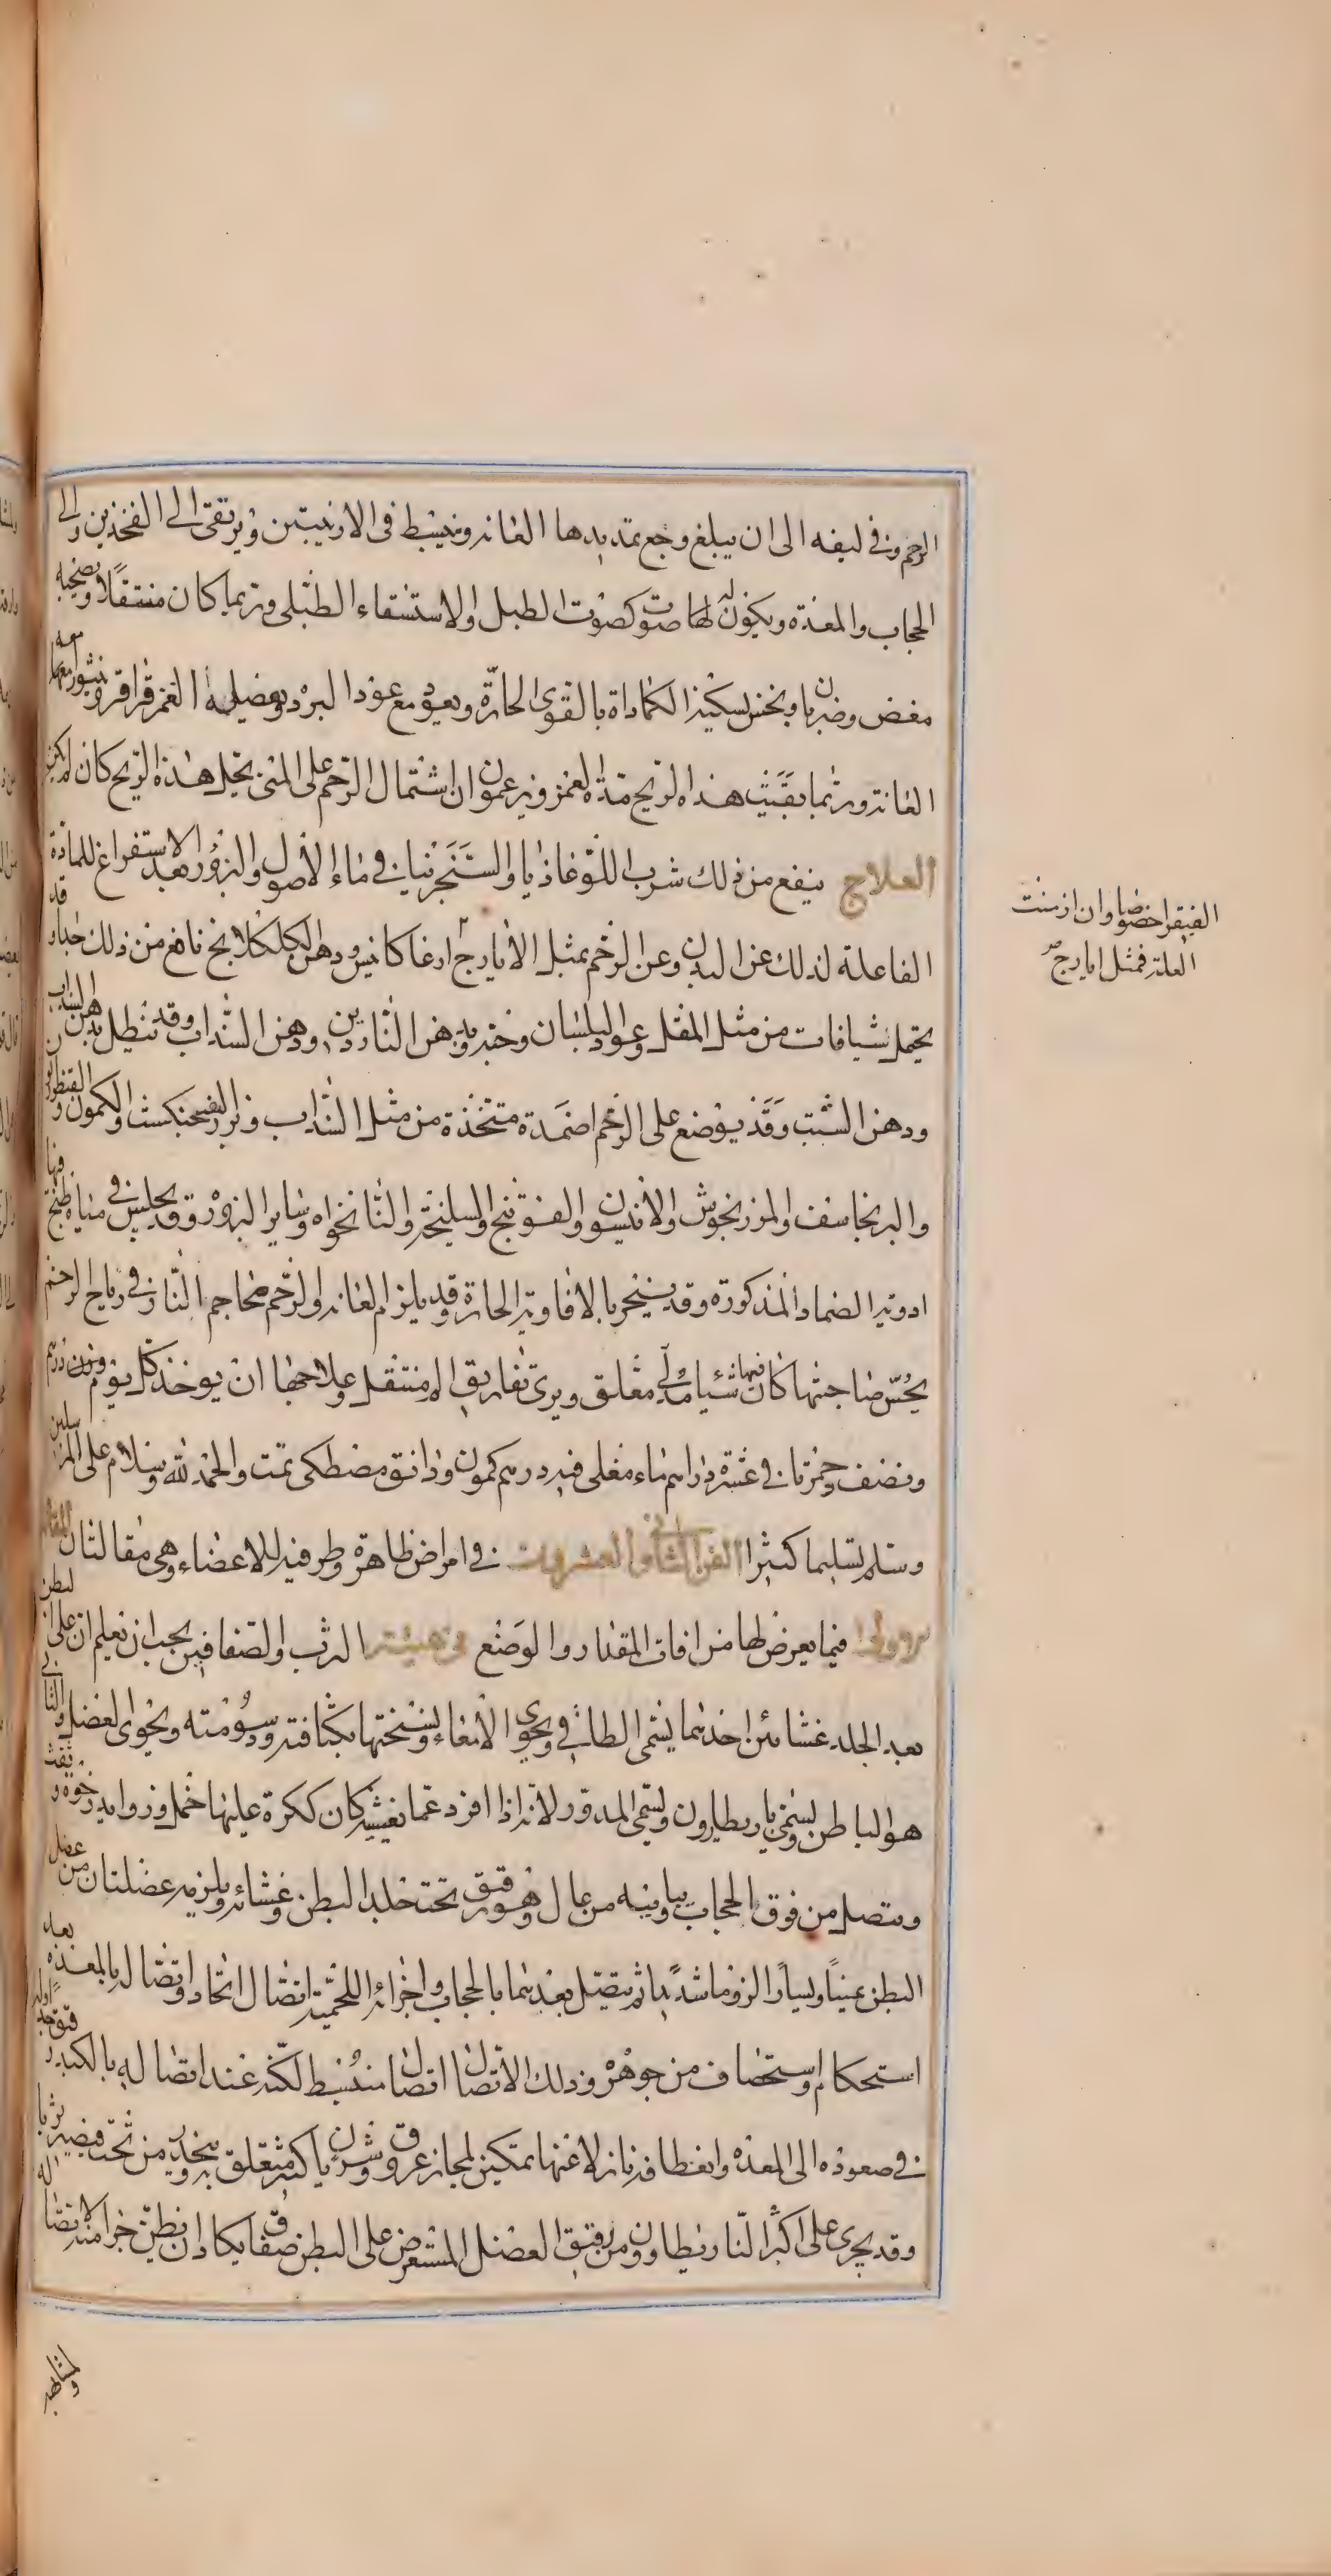 الرحم وفى ليفه الى ان يبلغ وجع تمديدها العانه وينبسط فى الاربيتين ويرتقى الى الفخذين والى
الحجاب والمعدة ويكون لها صوت كصوت الطبل والاستسقاء الطبلى وربما كان منتقلا ويصحبه
مغص وضربان ونخس يسكنه الكمادات بالقوى الحارة ويعود مع عود البرد ويفصل الغمز قراقر وينتوا معها معه
العانة وربما بقيت هذه الريح مدة العمر ويزعمون ان اشتمال الرحم على المنى يحلل هذه الريح كان لم يكن
العلاج ينفع من ذلك شرب اللوغاذيا والسنجرنيا فى ماء الاصول والبزور بعد الاستفراغ للمادة
الفاعلة لذلك عن البدن وعن الرحم بمثل الايارج ارغاكانيس ودهن الكلكلانج نافع من ذلك جدا وقد
يحتمل شيافات من مثل المقل وعود البلسان وحبه ودهن الناردين ودهن السذاب وقد تنطل بدهن السذاب
ودهن الشبت وقد يوضع على الرحم اضمدة متخذة من مثل السذاب وبزر الفنجنكشت والكمون والقنطوريون
والبرنجاسف والمرزنجوش والانيسون والفوتنج والسليخة والنانخواه وساير البزور وقد يجلس فى مياه طبخ فيها
ادوية الضماد المذكورة وقد يتبخر بالافاويه الحارة وقد يلزم العانة والرحم محاجم النار فى رياح الرحم
يحس صاحبتها كان فيها شيئا مدلى معلق ويرى تفاريق الم منتقل وعلاجها ان يوخذ كل يوم وزن درهم
ونصف جمزنا فى عشرة دراهم ماء مغلى فيه درهم كمون ودانق مصطكى تمت والحمد لله وسلام على المرسلين
وسلم تسليما كثيرا الفن الثانى والعشرون فى امراض ظاهرة وطرفية للاعضاء وهى مقالتان المقالة
الاولى فيما يعرض لها من افات المقدار والوضع فى هيئة الثرب والصفاقين يجب ان تعلم ان على البطن
بعد الجلد غشائين احدهما يسمى الطافى ويحوى الامعاء ويسخنها بكثافته ودسومته ويحوى العضل والثانى
هو الباطن ويسمى باريطارون ويسمى المدور لانه اذا افرد عما يغشيه كان ككرة عليها خمل وزوايد رخوة وثقب
ويتصل من فوق بالحجاب ويباينه من عال وهو رقيق تحت جلد البطن وغشائه ويلزمه عضلتان من عضل
البطن يمينا ويسارا لزوما شديدا ثم يتصل بعدهما بالحجاب واجزائه اللحمية اتصال اتحاد واتصاله بالمعدة بعد
استحكام واستحصاف من جوهره وذلك الاتصال اتصال منبسط لكنه عند اتصاله بالكبد رقيق جدا وله
فى صعوده الى المعدة وانعطافه نازلا عنها تمكين لمجاز عروق وشريان كثير متعلق به وينحدر من تحت فيصير ثربا
وقد يجرى على اكثر الباريطاون ومن رقيق العضل المستعرض على البطن صفاق يكاد ان يظن جزا منه لاتصاله
ولمشابهه
الفيقرا خصوصا وان ازمنت
العلة فمثل ايارج صح